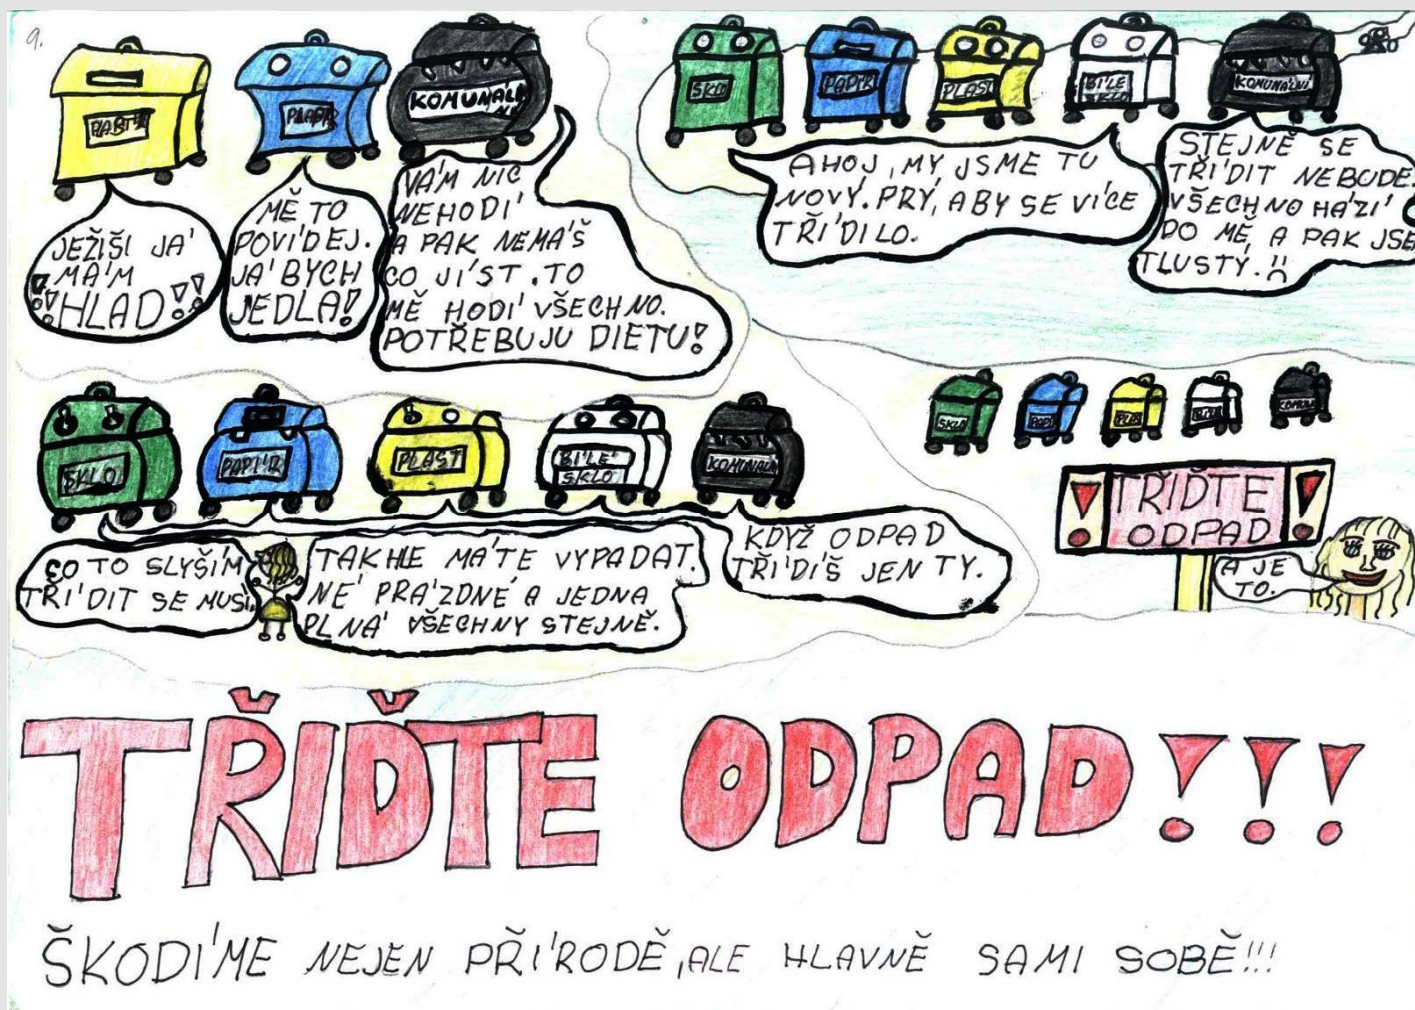 9.
KOMUNÁL
NÍ
JEŽIŠI JÁ
MÁM
!!HLAD!!
MĚ TO
POVÍDEJ.
JÁ BYCH
JEDLA!
VÁM NIC
NEHODÍ
A PAK NEMÁŠ
CO JÍST.TO
MĚ HODÍ VŠECHNO.
POTŘEBUJU DIETU!
SKLO
PAPÍR
PLAST
BÍLÉ
SKLO
KOMUNÁLNÍ
AHOJ, MY JSME TU
NOVÝ. PRÝ, ABY SE VÍCE
TŘÍDILO.
STEJNĚ SE
TŘÍDIT NEBUDE.
VŠECHNO HÁZÍ
DO MĚ, A PAK JSE
TLUSTÝ.
SKLO
PAPÍR
PLAST
BÍLÉ
SKLO
KOMUNÁLNÍ
CO TO SLYŠÍM
TŘÍDIT SE MUSÍ.
TAKHLE MÁTE VYPADAT.
NÉ PRÁZDNÉ A JEDNA
PLNÁ VŠECHNY STEJNĚ.
KDYŽ ODPAD
TŘÍDÍŠ JEN TY.
SKLO
TŘIĎTE
ODPAD
A JE
TO.
TŘIĎTE ODPAD!!!
ŠKODÍME NEJEN PŘÍRODĚ, ALE HLAVNĚ SAMI SOBĚ!!!